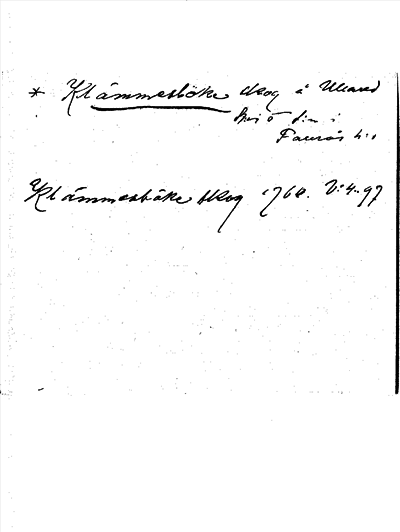 * Klämmesböke skog i Ullared
sn i
Faurås h:d
Klämmesböke skog 1764. V:4:97